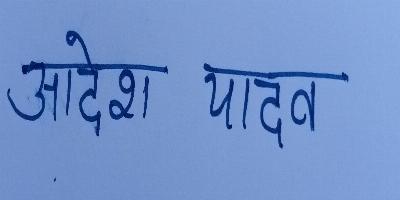 आदेश यादव